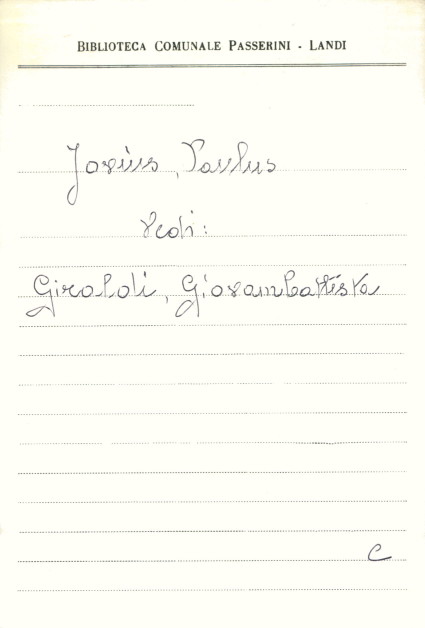 BIBLIOTECA COMUNALE PASSERINI - LANDI
Jovius, Paulus
Vedi:
Giraldi, Giovambattista
C